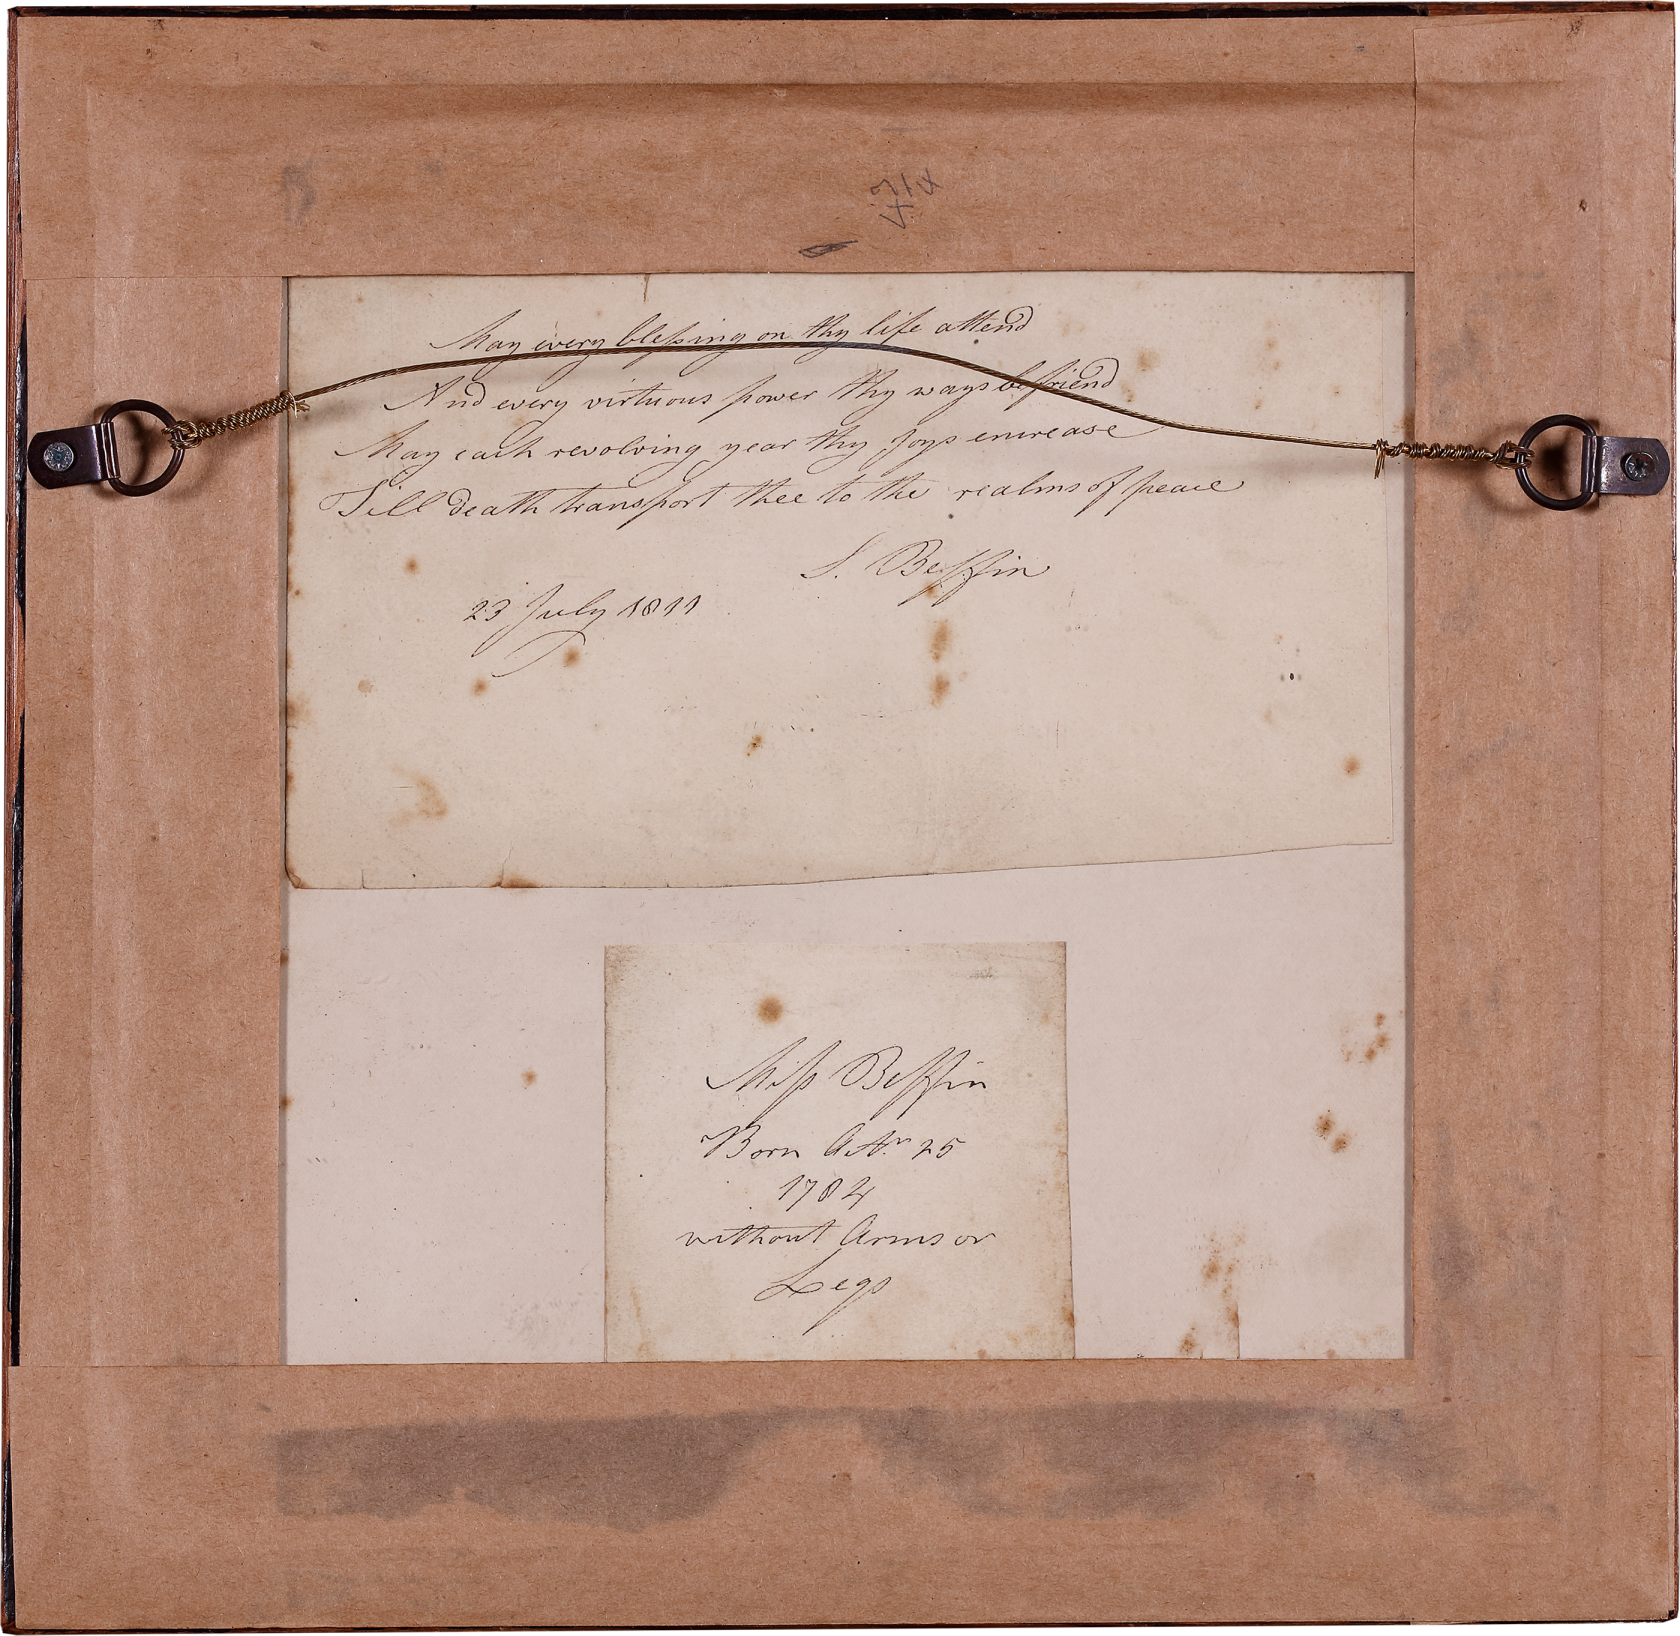 May every blessing on thy life attend
And every virtuous power thy ways befriend
May each revolving year thy Joys encrease
Till death transport thee to the realms of peace
S. Beffin
23 July 1811
Miss Beffin
Born Octr. 25
1784
without Arms or
Legs